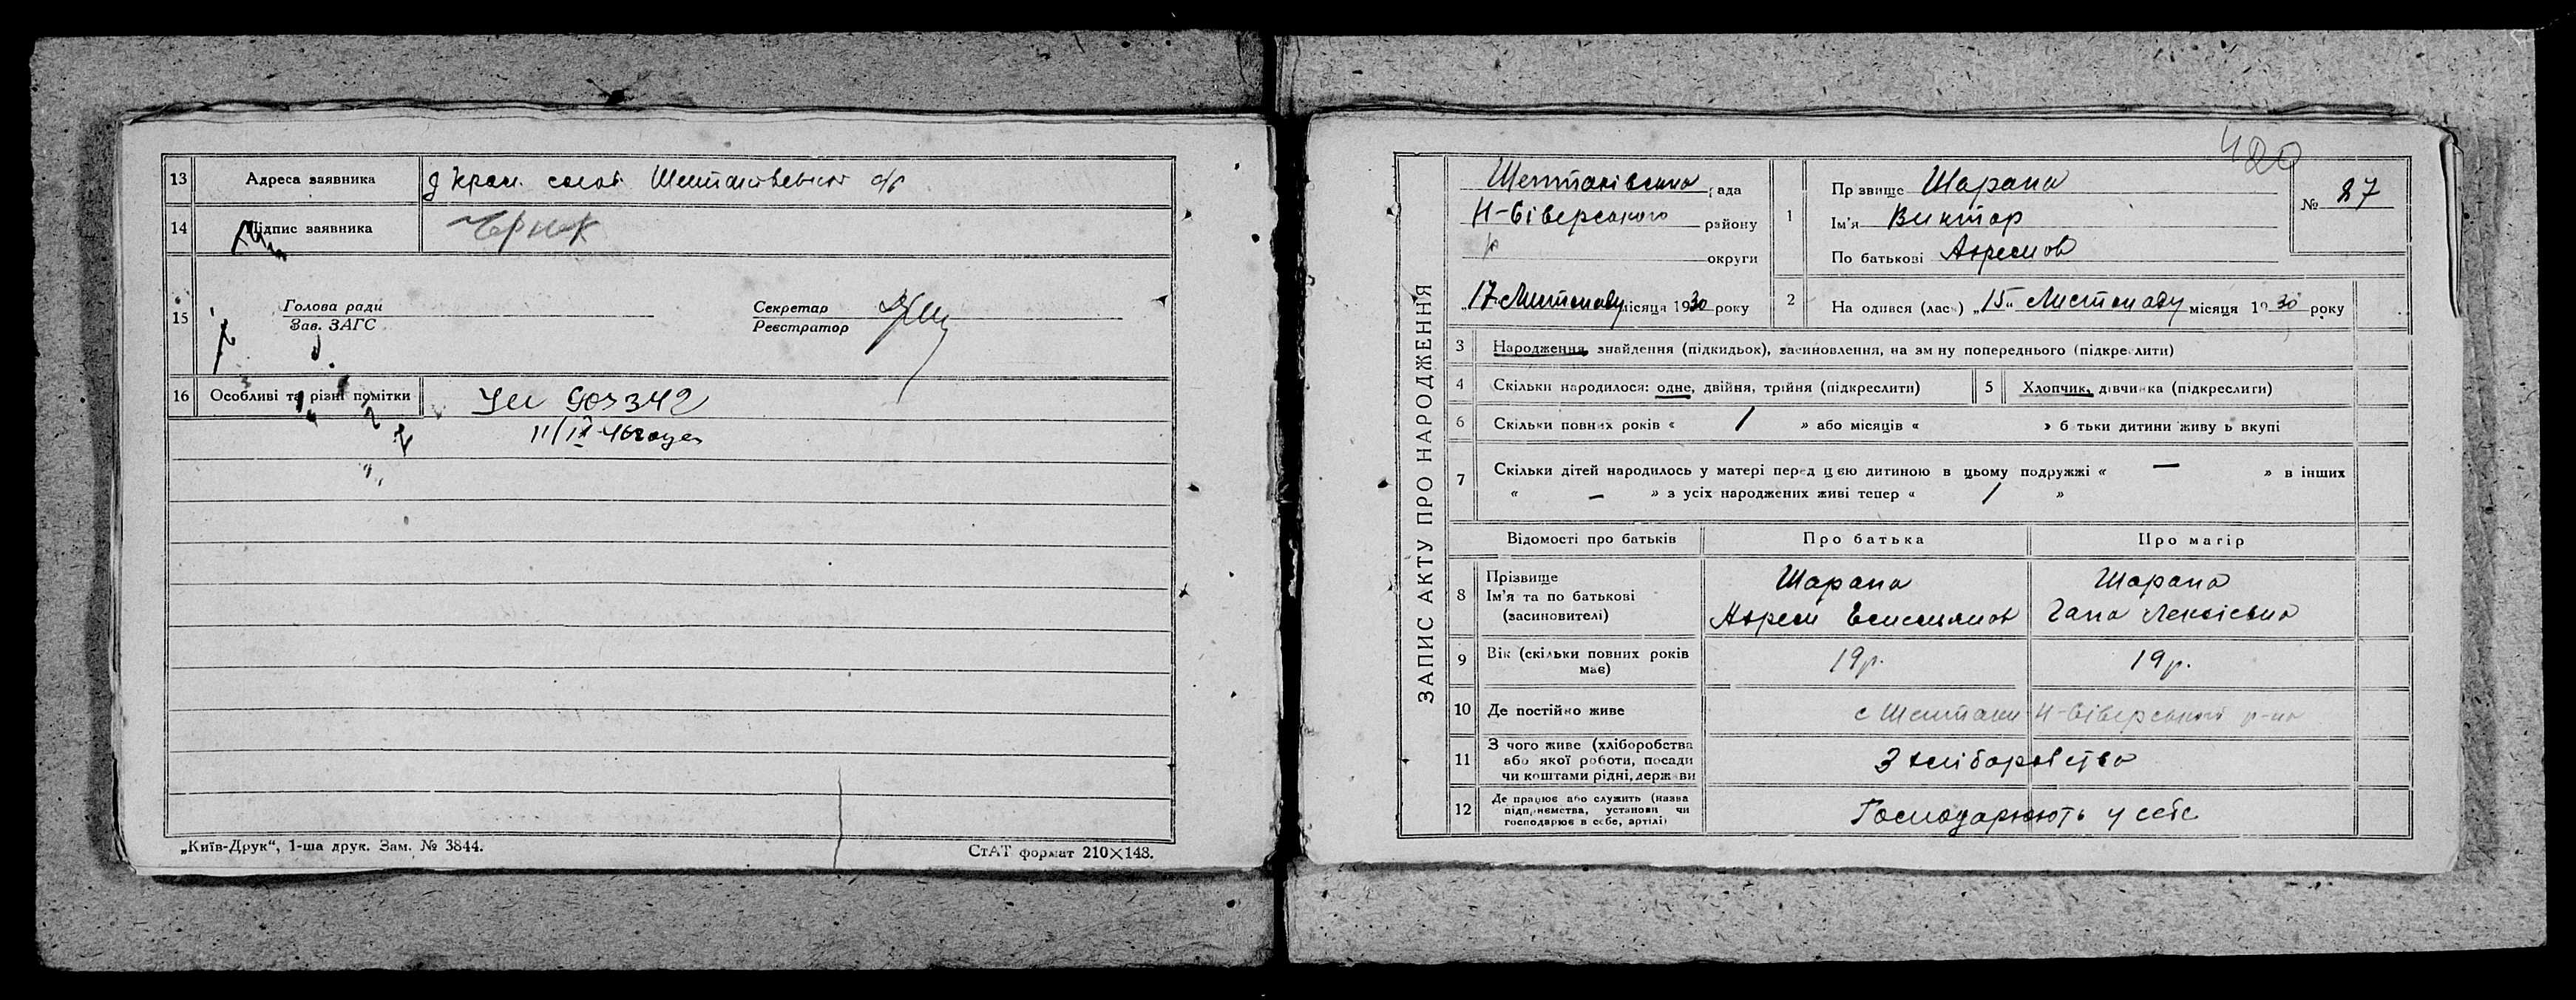 13 Адреса заявника
14 Підпис заявника Черняк
15 Голова ради
Зав. ЗАГС
Секретар
Реєстратор
16 Особливі та різні помітки 903342
11/IX-46 года
„Київ-Друк“, 1-ша друк. Зам. № 3844.
СтАТ формат 210×148.
420
ЗАПИС АКТУ ПРО НАРОДЖЕННЯ
Шептаківська рада
Н-Сіверського району
округи
„17 Листопаду місяця 1930 року
1 Прізвище Шарапа
Ім'я Виктор
По батькові Ахремов
№ 27
2 На одився (лась) „15„ Листопаду місяця 1930 року
3 Народження, знайдення (підкидьок), засиновлення, на зміну попереднього (підкреслити)
4 Скільки народилося: одне, двійня, трійня (підкреслити)
5 Хлопчик, дівчинка (підкреслити)
6 Скільки повних років « 1 » або місяців « » батьки дитини живуть вкупі
7 Скільки дітей народилось у матері перед цією дитиною в цьому подружжі « — » в інших
« — » з усіх народжених живі тепер « 1 »
Відомості про батьків
Про батька
Про матір
8 Прізвище
Ім'я та по батькові
(засиновителі)
Шарапа
Ахрем
Шарапа
Гапа Лексієвна
9 Вік (скільки повних років
має)
19 р.
19 р.
10 Де постійно живе
с Шептаки Н-Сіверського р-на
11 З чого живе (хліборобства
або якої роботи, посади
чи коштами рідні, держави
З хліборобства
12 Де працює або служить (назва
підприємства, установи чи
господарює в себе, артілі)
Господарюють у себе